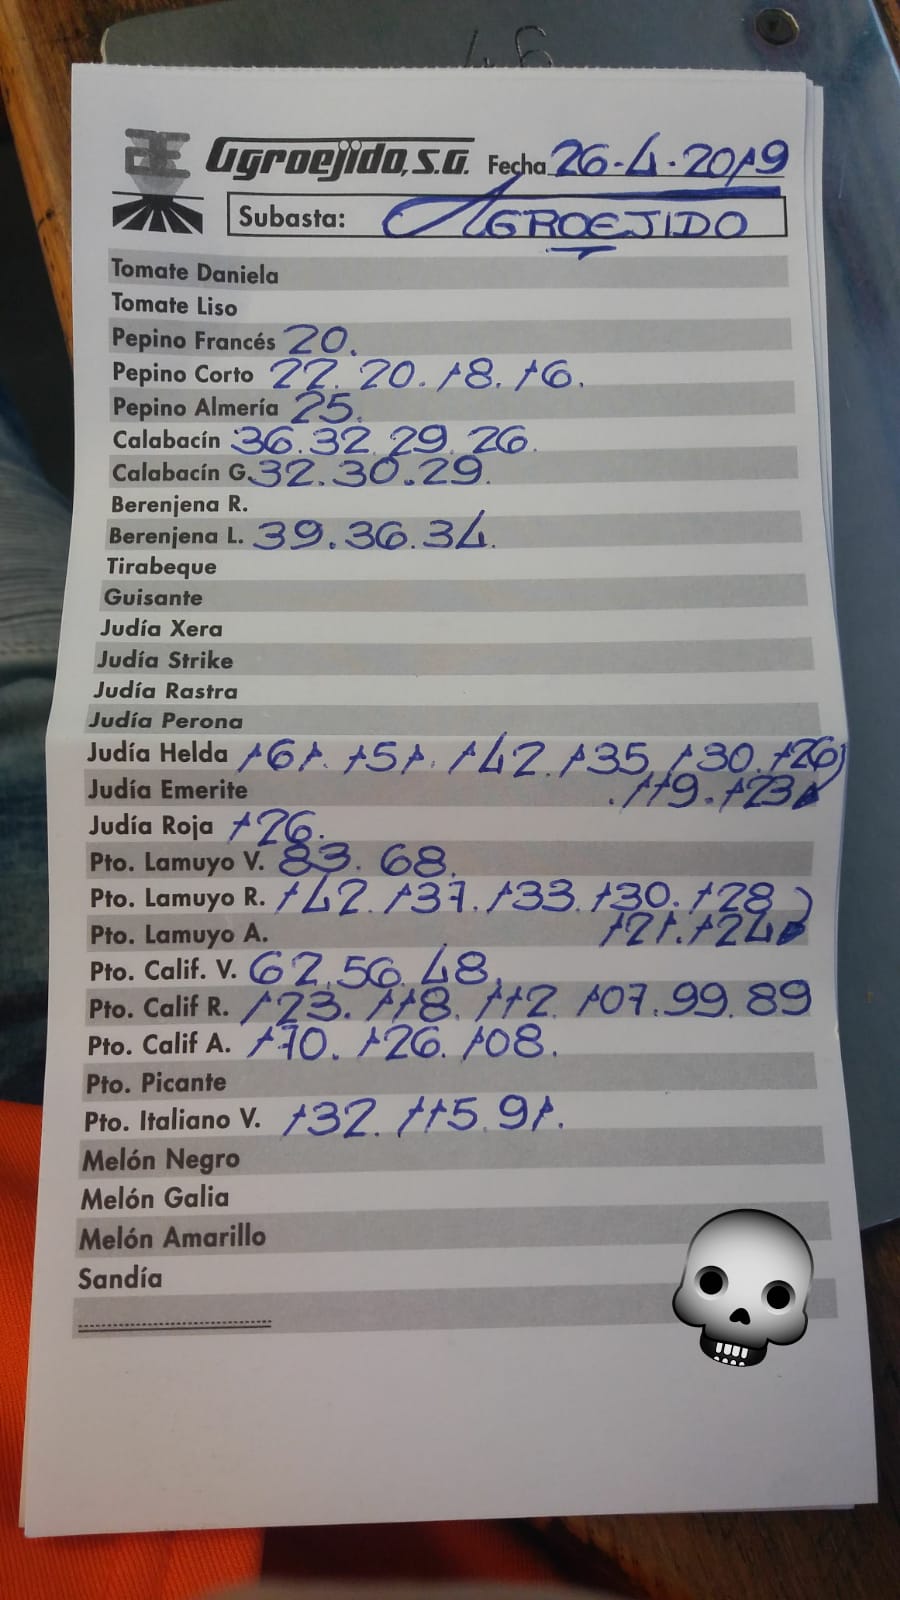 46
Agroejido, S.G. Fecha 26-4-2019
Subasta: AGROEJIDO
Tomate Daniela
Tomate Liso
Pepino Francés 20.
Pepino Corto 22. 20. 18. 16.
Pepino Almería 25.
Calabacín 36. 32. 29. 26.
Calabacín G. 32. 30. 29.
Berenjena R.
Berenjena L. 39. 36. 34.
Tirabeque
Guisante
Judía Xera
Judía Strike
Judía Rastra
Judía Perona
Judía Helda 161. 151. 142. 135. 130. 126
Judía Emerite . 119. 123
Judía Roja 126.
Pto. Lamuyo V. 83. 68.
Pto. Lamuyo R. 142. 137. 133. 130. 128
Pto. Lamuyo A. 121. 124
Pto. Calif. V. 62. 56. 48.
Pto. Calif R. 123. 118. 112. 107. 99. 89
Pto. Calif A. 170. 126. 108.
Pto. Picante
Pto. Italiano V. 132. 115. 91.
Melón Negro
Melón Galia
Melón Amarillo
Sandía